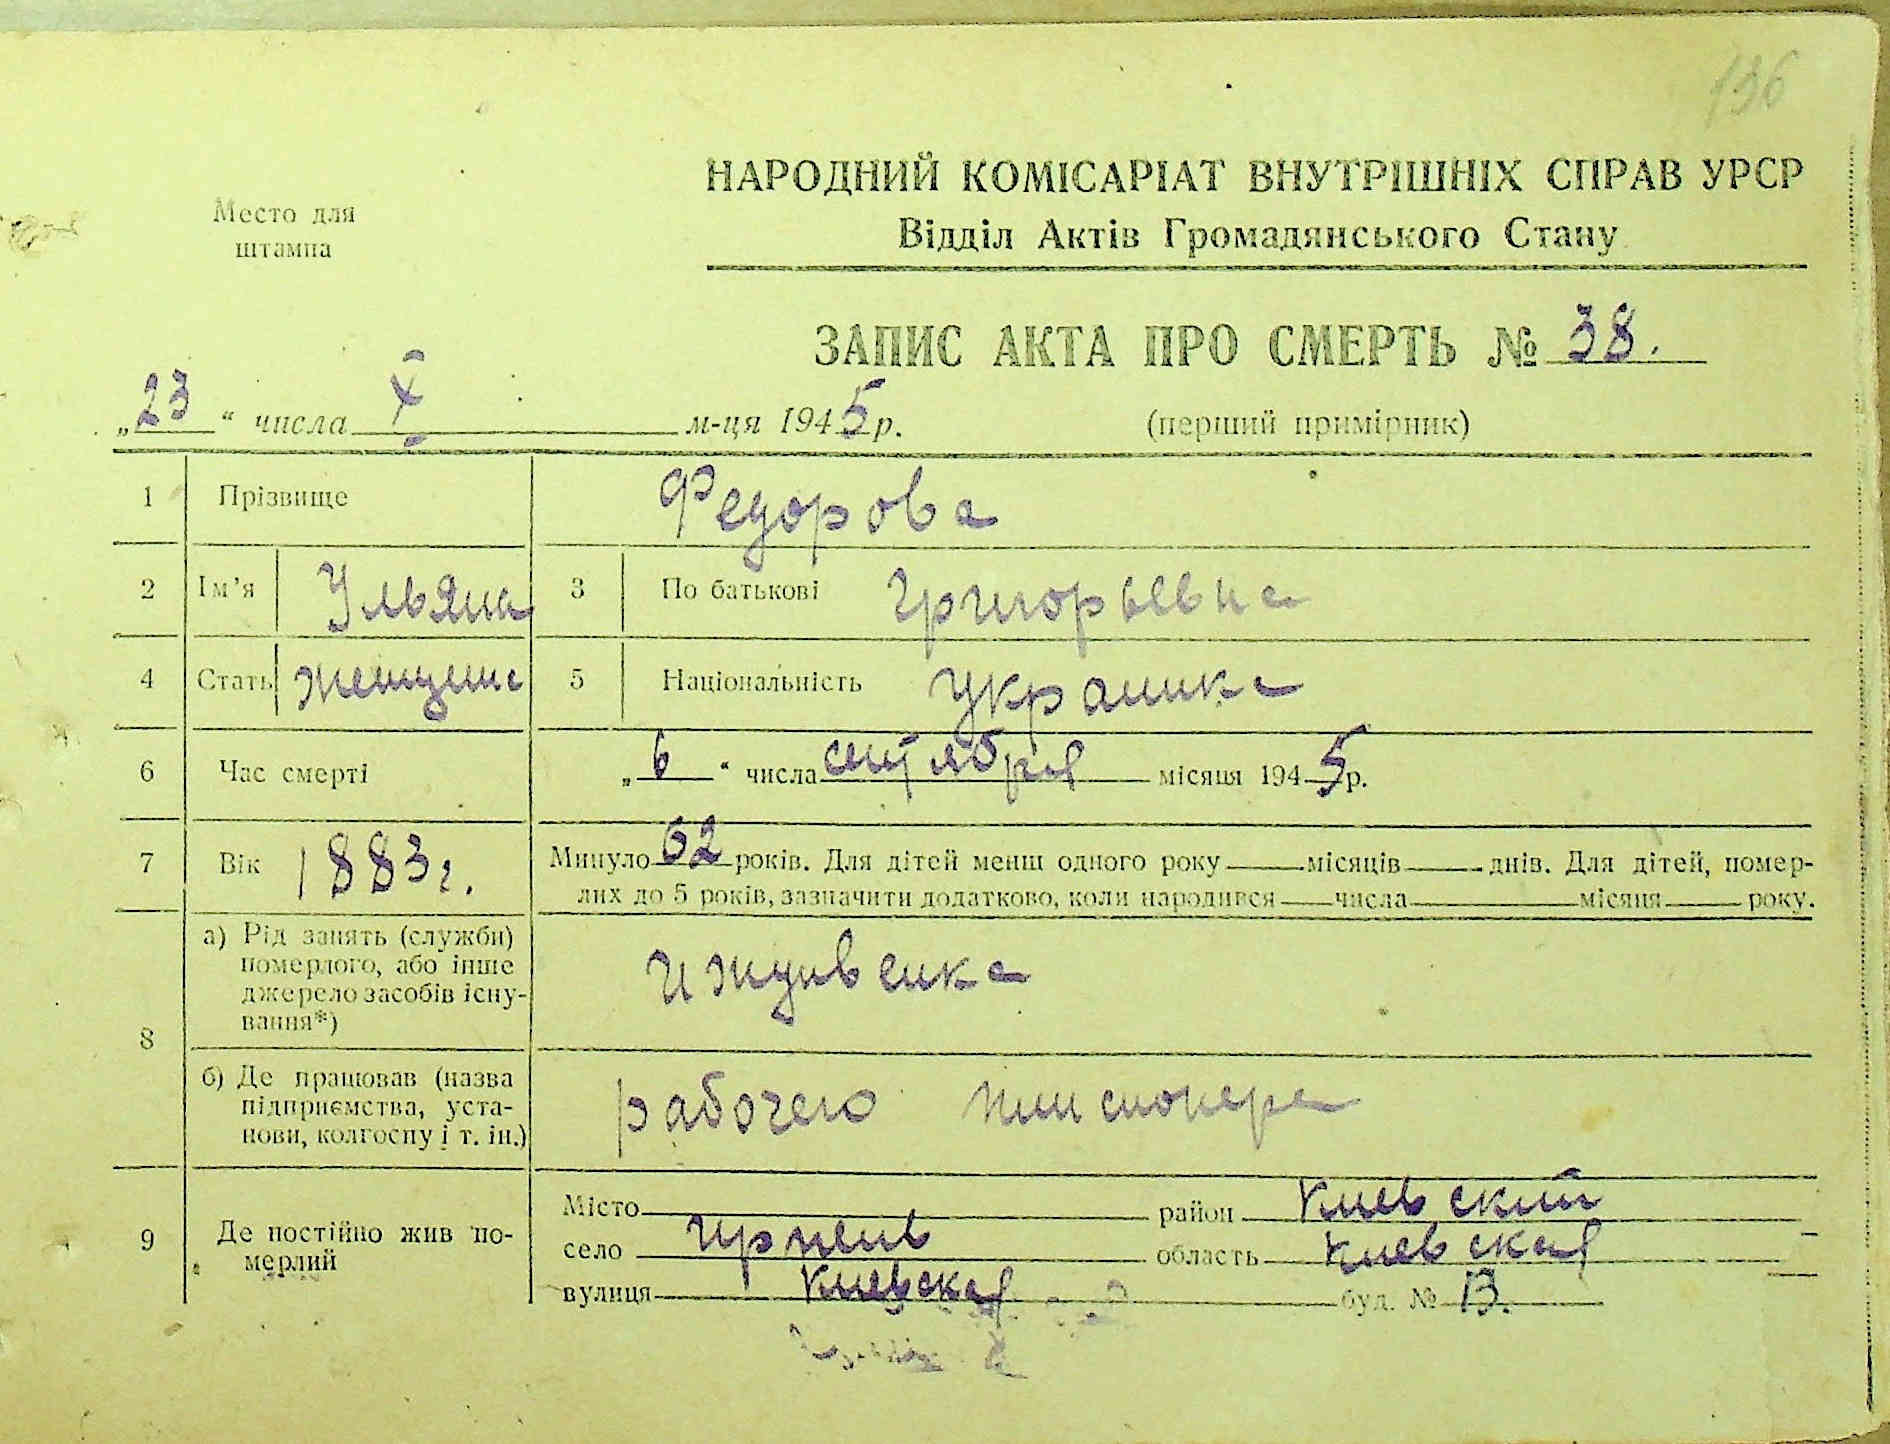 136
НАРОДНИЙ КОМІСАРІАТ ВНУТРІШНІХ СПРАВ УРСР
Место для
штампа
Відділ Актів Громадянського Стану
ЗАПИС АКТА ПРО СМЕРТЬ № 38.
„23“ числа X м-ця 1945 р.
(перший примірник)
1 Прізвище Федорова
2 Ім'я Ульяна 3 По батькові Григорьевна
4 Стать женщина 5 Національність Украинка
6 Час смерті „6“ числа сентября місяця 1945 р.
7 Вік 1883 г. Минуло 62 років. Для дітей менш одного року місяців днів. Для дітей, помер-
лих до 5 років, зазначити додатково, коли народився числа місяця року.
8 а) Рід занять (служби)
померлого, або інше
джерело засобів існу-
вання*)
Иждивенка
б) Де працював (назва
підприємства, уста-
нови, колгоспу і т. ін.)
рабочего пенсионера
9 Де постійно жив по-
мерлий
Місто район Киевский
село Ирпень область Киевская
вулиця Киевская буд. №